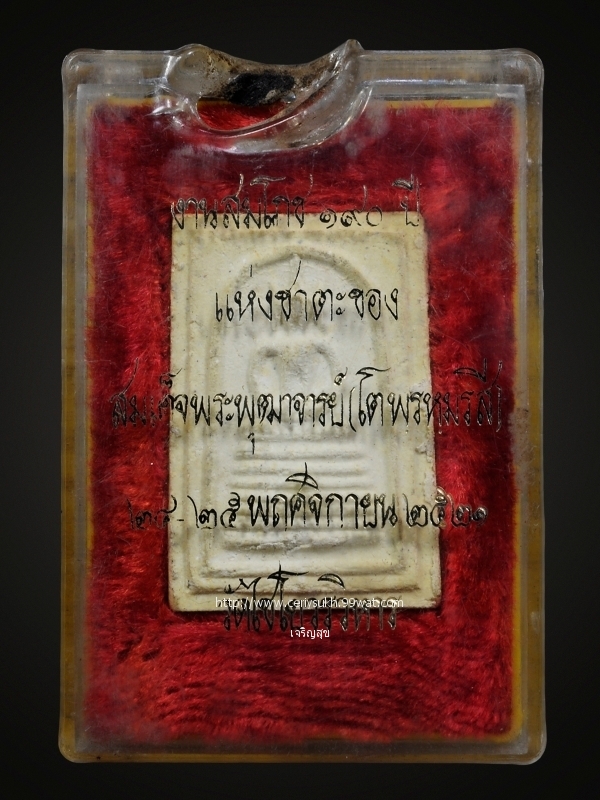 งานสมโภช ๑๙๐ ปี
แห่งชาตะของ
สมเด็จพระพุฒาจารย์(โตพรหมรังสี)
พฤศจิกายน ๒๕๒๑
http://www.cerivsukh.99wat.com
เจริญสุข